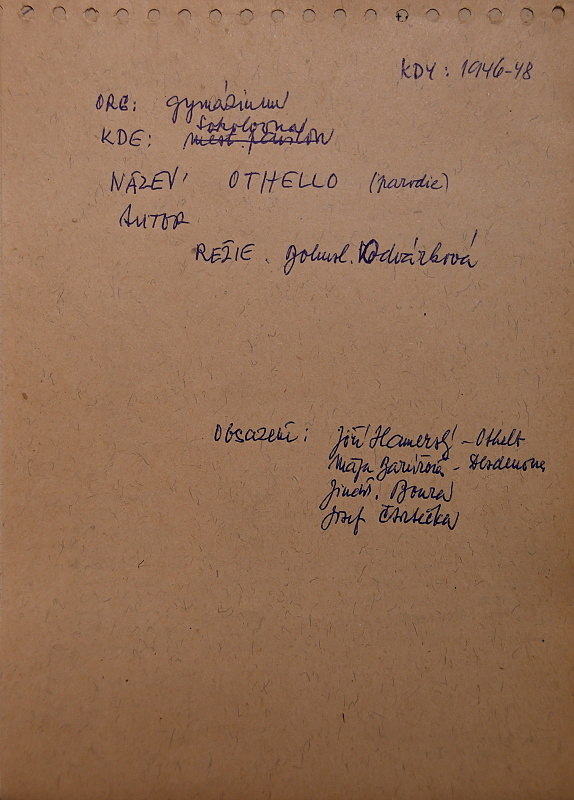 KDY: 1946-48
ORG: gymázium
Sokolovna
KDE:
NÁZEV: OTHELLO (parodie)
AUTOR
REŽIE. Odvárková
Obsazení: Jiří Hamerský - Othelt
Mája - Desdemona
Jindř. Bouza
Josef Čtvrtečka